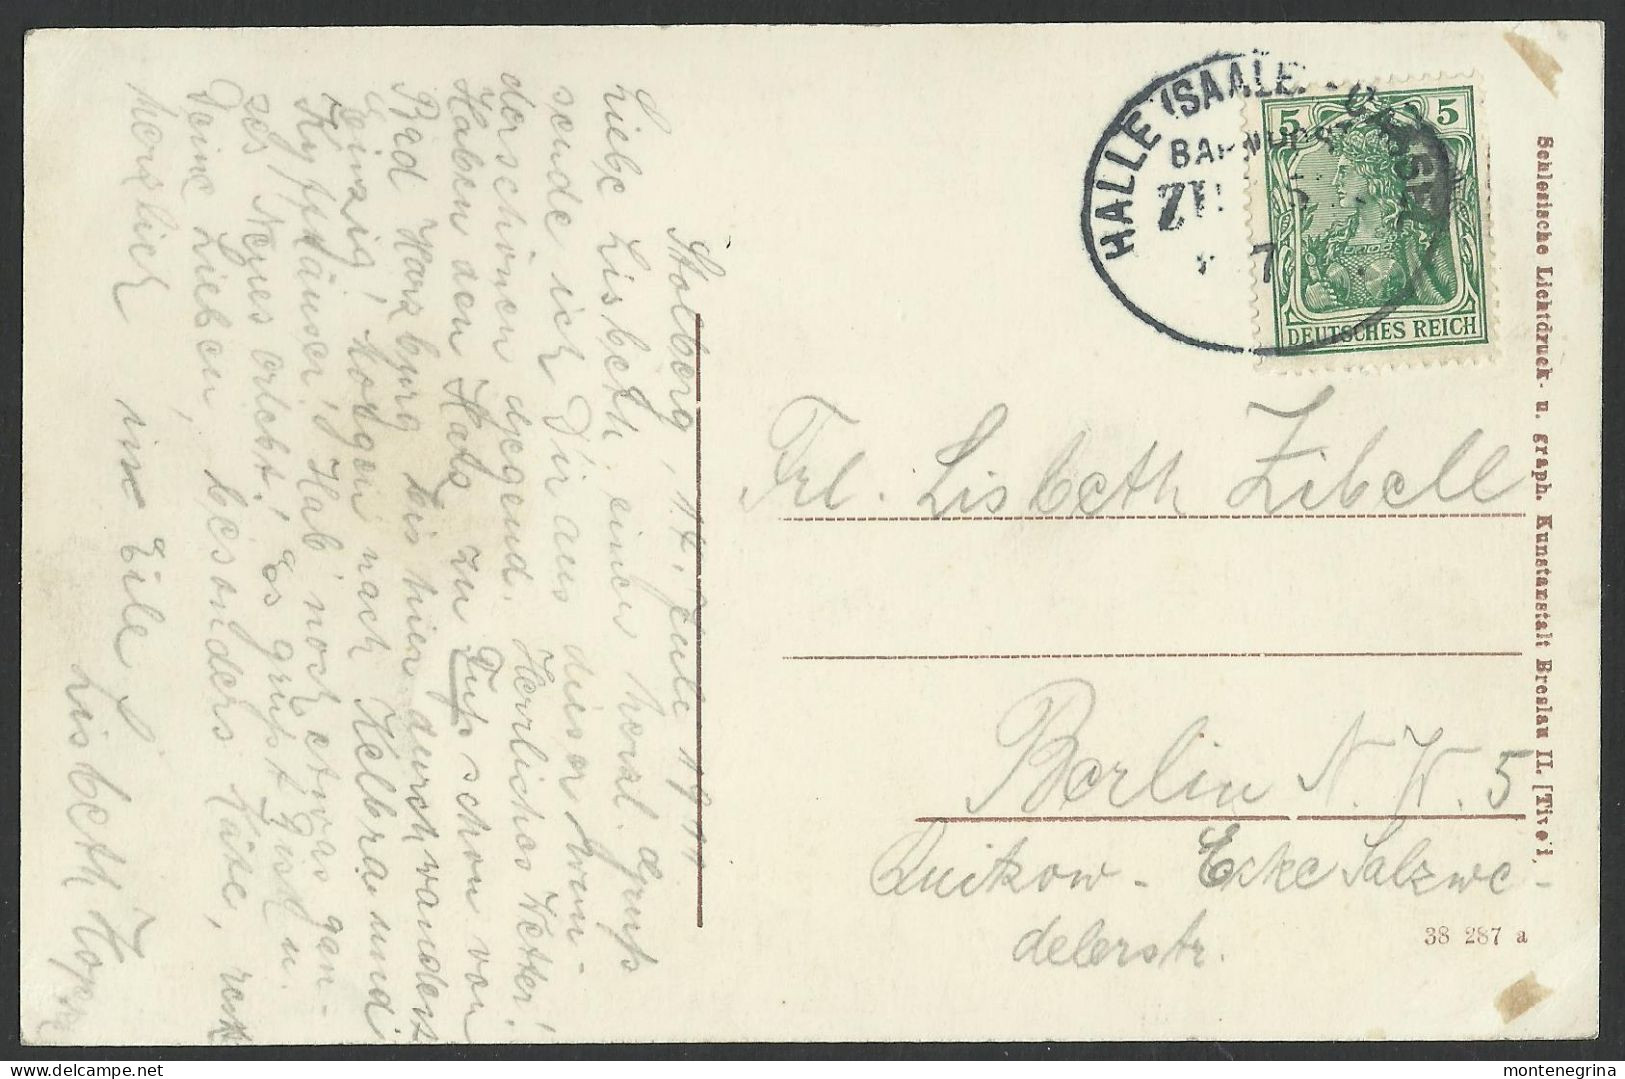 Stolberg, 14. Juli 1911.
Liebe Lisbeth, einen herzl. Gruß
sende ich Dir aus dieser wun-
derschönen Gegend. Herrliches Wetter!
Haben den Harz zu Fuß schon von
Bad Harzburg bis hier durchwandert
Einzig! Morgen nach Kelbra und
Kyffhäuser, Hab' noch etwas gan-
zes Neues erlebt! Es grüßt Dich u.
Deine Lieben, besonders Käte, recht
herzlich in Eile!
Lisbeth
HALLE (SAALE) - CASSEL
BAHNPOST
ZUG
7
5 5
DEUTSCHES REICH
Frl. Lisbeth Zibell
Berlin N. W. 5
Quitzow - Ecke Salzwe-
delerstr.
38 287 a
Schlesische Lichtdruck- u. graph. Kunstanstalt Breslau II. [Tivoli.
montenegrina